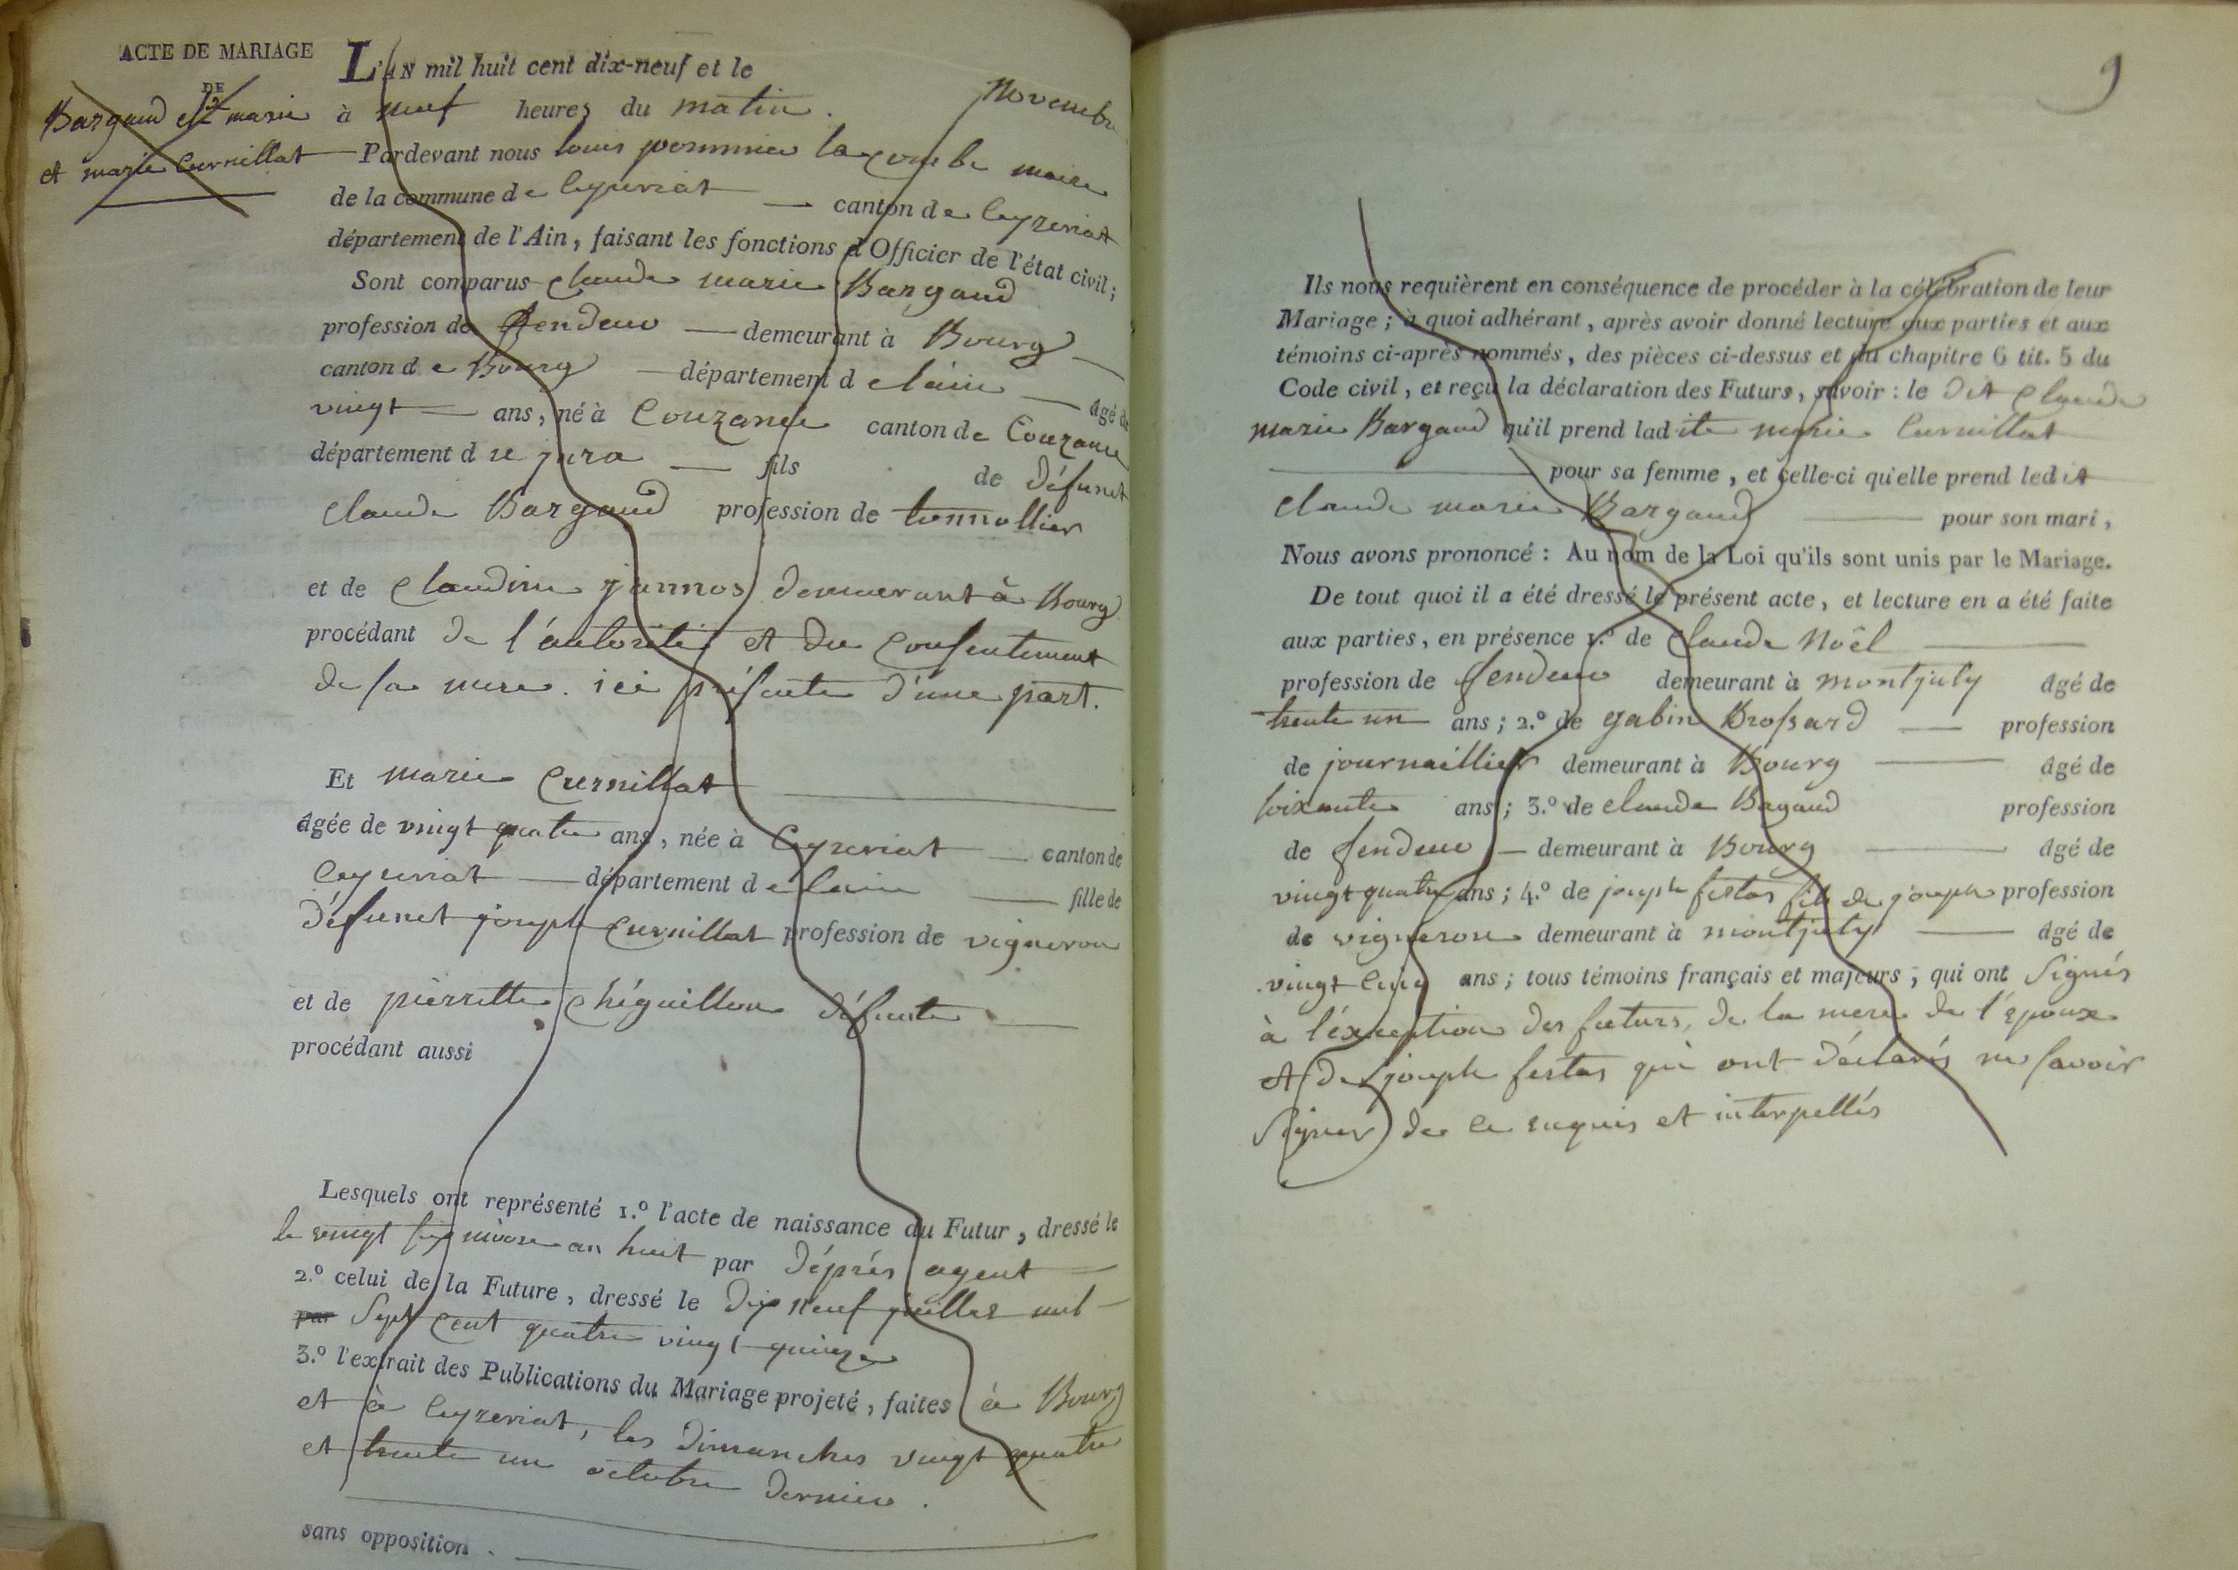 ACTE DE MARIAGE
DE
Bargaud cl. marie
et marie Curnillat
L'AN mil huit cent dix-neuf et le
novembre
à neuf heures du matin.
Pardevant nous louis pommier lacombe maire
de la commune de Ceyzeriat — canton de Ceyzeriat
département de l'Ain, faisant les fonctions d'Officier de l'état civil;
Sont comparus claude marie Bargaud
profession de fendeur — demeurant à Bourg —
canton de Bourg — département de lain — âgé de
vingt — ans, né à Couzance canton de Couzance
département du jura — fils de défunt
claude Bargaud profession de tonnollier
et de claudine demeurant à Bourg
procédant de l'autorité et du consentement
de sa mere ici présente d'une part.
Et marie Curnillat
âgée de vingt quatre ans, née à Ceyzeriat — canton de
Ceyzeriat — département de lain — fille de
défunct joseph Curnillat profession de vigneron
et de pierrette défunte —
procédant aussi
Lesquels ont représenté 1.º l'acte de naissance du Futur, dressé le
le vingt six nivose an huit par Déprés agent —
2.º celui de la Future, dressé le dix neuf juillet mil —
par sept cent quatre vingt quinze
3.º l'extrait des Publications du Mariage projeté, faites à Bourg
et à Ceyzeriat, les dimanches vingt quatre
et trente un octobre dernier.
sans opposition.
9
Ils nous requièrent en conséquence de procéder à la célébration de leur
Mariage; à quoi adhérant, après avoir donné lecture aux parties et aux
témoins ci-après nommés, des pièces ci-dessus et du chapitre 6 tit. 5 du
Code civil, et reçu la déclaration des Futurs, savoir: le dit Claude
marie Bargaud qu'il prend ladite marie Curnillat
— pour sa femme, et celle-ci qu'elle prend ledit
claude marie Bargaud — pour son mari,
Nous avons prononcé: Au nom de la Loi qu'ils sont unis par le Mariage.
De tout quoi il a été dressé le présent acte, et lecture en a été faite
aux parties, en présence 1.º de claude Noël —
profession de fendeur demeurant à montjuly âgé de
trente un ans; 2.º de gabin Brossard — profession
de journaillier demeurant à Bourg — âgé de
soixante ans; 3.º de claude Bagaud profession
de fendeur — demeurant à Bourg — âgé de
vingt quatre ans; 4.º de joseph festas fils de joseph profession
de vigneron demeurant à montjuly — âgé de
vingt cinq ans; tous témoins français et majeurs, qui ont signés
à l'éxception des futurs, de la mere de l'époux
et de joseph festas qui ont déclarés ne savoir
signer de ce requis et interpellés